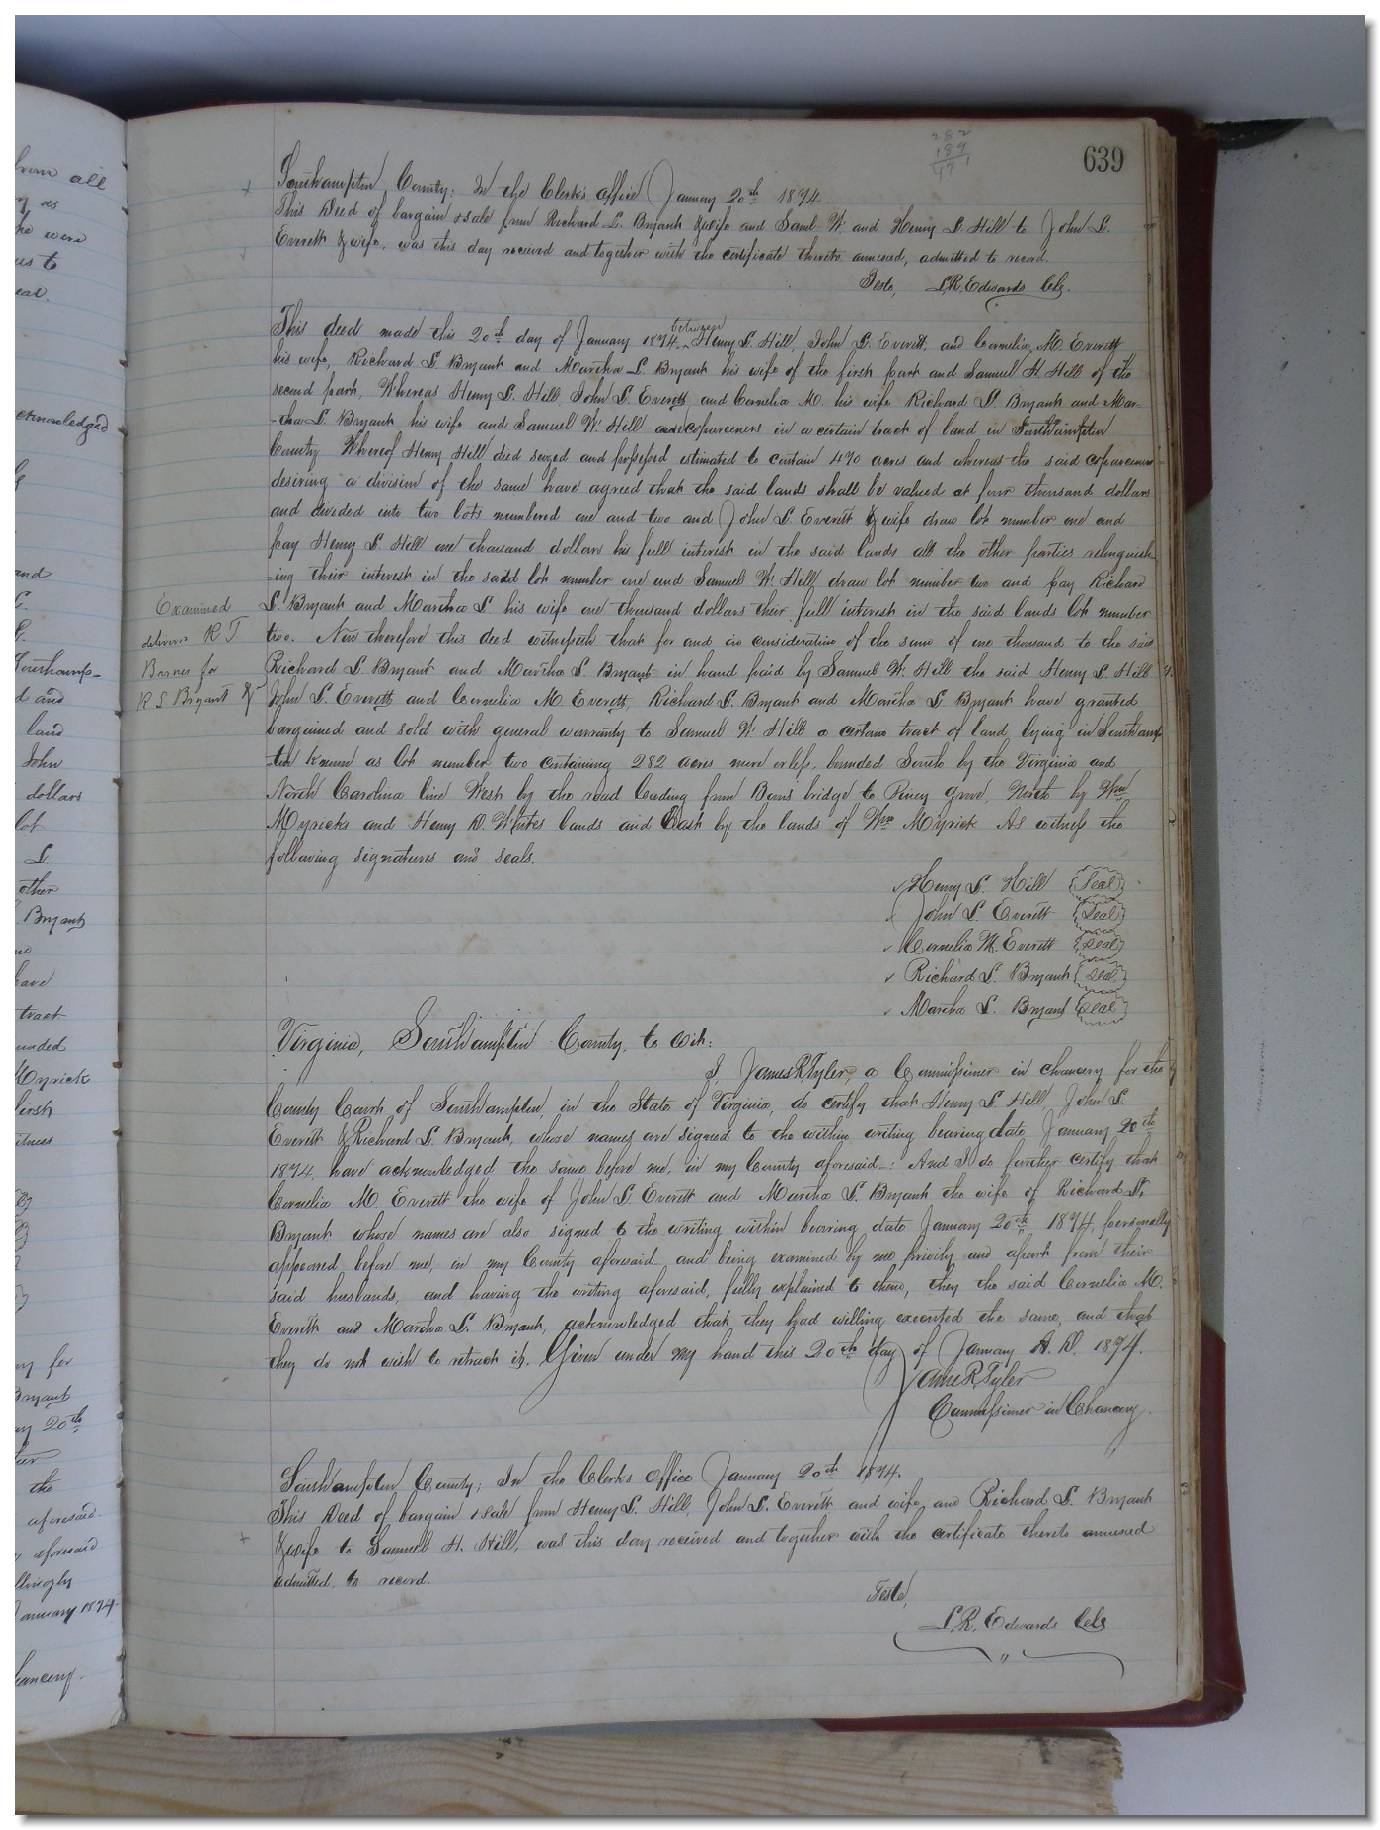 282
189
471
639
Southampton County: In the Clerks office January 20th 1874
This Deed of bargain & sale from Richard L. Bryant & wife and Saml W. and Henry L. Hill to John L.
Everett & wife, was this day received and together with the certificate thereto annexed, admitted to record.
Teste, L.R. Edwards Clk.
This deed made this 20th day of January 1874, between Henry L. Hill, John L. Everett, and Cornelia M. Everett
his wife, Richard L. Bryant and Martha L. Bryant his wife of the first part and Samuel H. Hill of the
second part, Whereas Henry L. Hill John L. Everett and Cornelia M. his wife Richard L. Bryant and Mar-
-tha L. Bryant his wife and Samuel W. Hill are coparceners in a certain tract of land in Southampton
County Whereof Henry Hill died seized and possessed estimated to contain 470 acres and whereas the said coparceners
desiring a division of the same have agreed that the said lands shall be valued at four thousand dollars
and divided into two lots numbered one and two and John L. Everett & wife draw lot number one and
pay Henry L. Hill one thousand dollars his full interest in the said lands all the other parties relinquish-
-ing their interest in the said lot number one and Samuel W. Hill draw lot number two and pay Richard
L. Bryant and Martha L. his wife one thousand dollars their full interest in the said lands lot number
two. Now therefore this deed witnesseth that for and in consideration of the sum of one thousand to the said
Richard L. Bryant and Martha L. Bryant in hand paid by Samuel W. Hill the said Henry L. Hill
John L. Everett and Cornelia M. Everett, Richard L. Bryant and Martha L. Bryant have granted
bargained and sold with general warranty to Samuel W. Hill a certain tract of land lying in Southamp-
ton known as lot number two containing 282 acres more or less, bounded South by the Virginia and
North Carolina line West by the road leading from Boons bridge to Piney grove, North by Wm
Myricks and Henry D. Whites lands and East by the lands of Wm Myrick As witness the
following signatures and seals.
Examined
deliver R T
Barnes for
R S Bryant &c
Henry L. Hill Seal
John L. Everett Seal
Cornelia M. Everett Seal
Richard L. Bryant Seal
Martha L. Bryant Seal
Virginia, Southampton County, to wit:
I, James R Tyler, a Commissioner in chancery for the
County Court of Southampton, in the State of Virginia, do certify that Henry L. Hill, John L.
Everett & Richard L. Bryant, whose names are signed to the within writing bearing date January 20th
1874, have acknowledged the same before me, in my County aforesaid: And I do further certify that
Cornelia M. Everett the wife of John L. Everett and Martha L. Bryant the wife of Richard L.
Bryant whose names are also signed to the writing within bearing date January 20th 1874, personally
appeared before me, in my County aforesaid and being examined by me privily and apart from their
said husbands, and having the writing aforesaid, fully explained to them, they the said Cornelia M.
Everett and Martha L. Bryant, acknowledged that they had willing executed the same, and that
they do not wish to retract it. Given under my hand this 20th day of January A. D. 1874.
James R. Tyler
Commissioner in Chancery.
Southampton County; In the Clerks Office January 20th 1874.
This Deed of bargain & sale from Henry L. Hill, John L. Everett and wife, and Richard L. Bryant
& wife to Samuel H. Hill, was this day received and together with the certificate thereto annexed
admitted to record.
Teste,
L.R. Edwards Clk